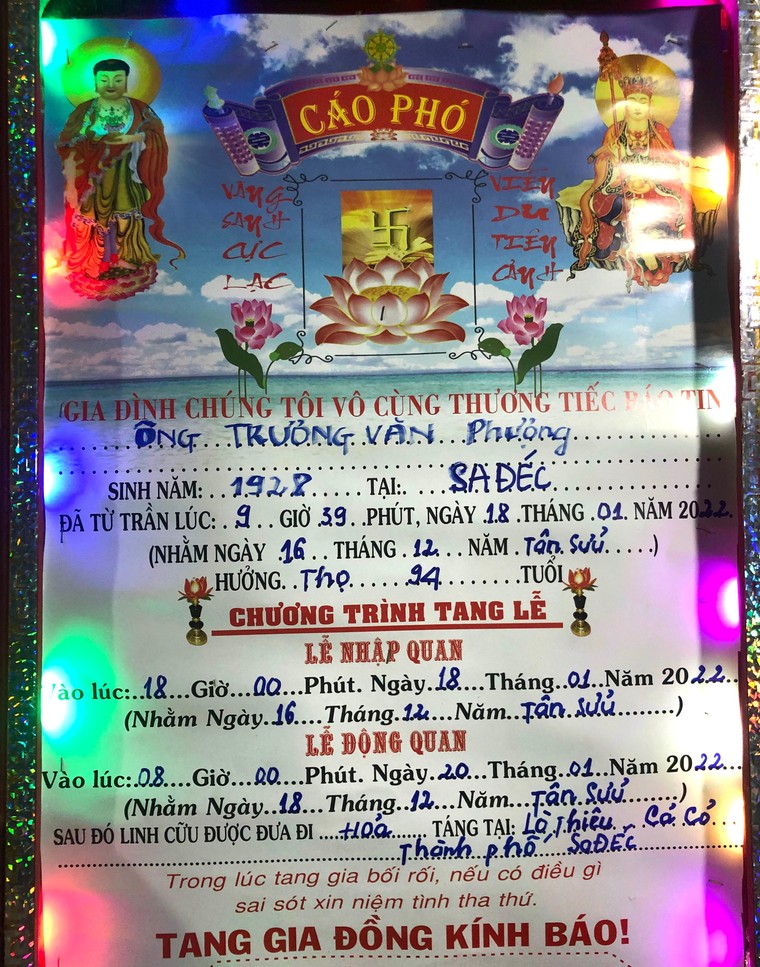 CÁO PHÓ
VÃNG
SANH
CỰC
LẠC
VIÊN
DU
TIÊN
CẢNH
GIA ĐÌNH CHÚNG TÔI VÔ CÙNG THƯƠNG TIẾC BÁO TIN
ÔNG TRƯƠNG VĂN Phượng
SINH NĂM: 1928 TẠI: SAĐÉC
ĐÃ TỪ TRẦN LÚC: 9 GIỜ 39 PHÚT, NGÀY 18 THÁNG 01 NĂM 2022
(NHẰM NGÀY 16 THÁNG 12 NĂM Tân Sửu)
HƯỞNG Thọ 94 TUỔI
CHƯƠNG TRÌNH TANG LỄ
LỄ NHẬP QUAN
Vào lúc: 18 Giờ 00 Phút. Ngày 18 Tháng 01 Năm 2022
(Nhằm Ngày 16 Tháng 12 Năm Tân Sửu)
LỄ ĐỘNG QUAN
Vào lúc: 08 Giờ 00 Phút. Ngày 20 Tháng 01 Năm 2022
(Nhằm Ngày 18 Tháng 12 Năm Tân Sửu)
SAU ĐÓ LINH CỮU ĐƯỢC ĐƯA ĐI HOẢ TÁNG TẠI: Lò Thiêu Cá Cỏ
Thành phố SAĐÉC
Trong lúc tang gia bối rối, nếu có điều gì
sai sót xin niệm tình tha thứ.
TANG GIA ĐỒNG KÍNH BÁO!